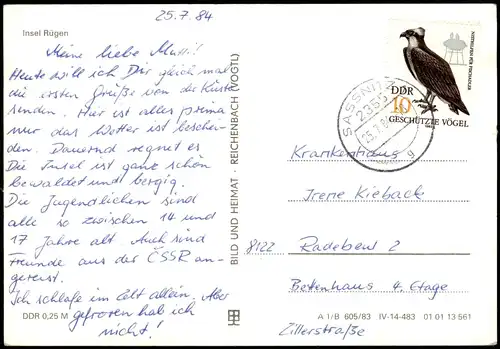 25.7.84
Insel Rügen
Meine liebe Mutti!
Heute will ich Dir gleich mal
die ersten Grüße von der Küste
senden. Hier ist alles prima
nur das Wetter ist beschei-
den. Dauernd regnet es
Die Insel ist ganz schön
bewaldet und bergig.
Die Jugendlichen sind
alle so zwischen 14 und
17 Jahre alt. Auch sind
Freunde aus der ČSSR an-
gereist.
Ich schlafe im Zelt allein, Aber
gefroren hab ich
nicht!
DDR 0,25 M
BILD UND HEIMAT · REICHENBACH (VOGTL)
NISTHILFEN FÜR FISCHADLER
DDR
10
GESCHÜTZTE VÖGEL
1982
SASSNITZ
2355
g
Krankenhaus
Irene Kieback
8122 Radebeul 2
Bettenhaus 4. Etage
Zillerstraße
A 1/B 605/83 IV-14-483 01 01 13 561